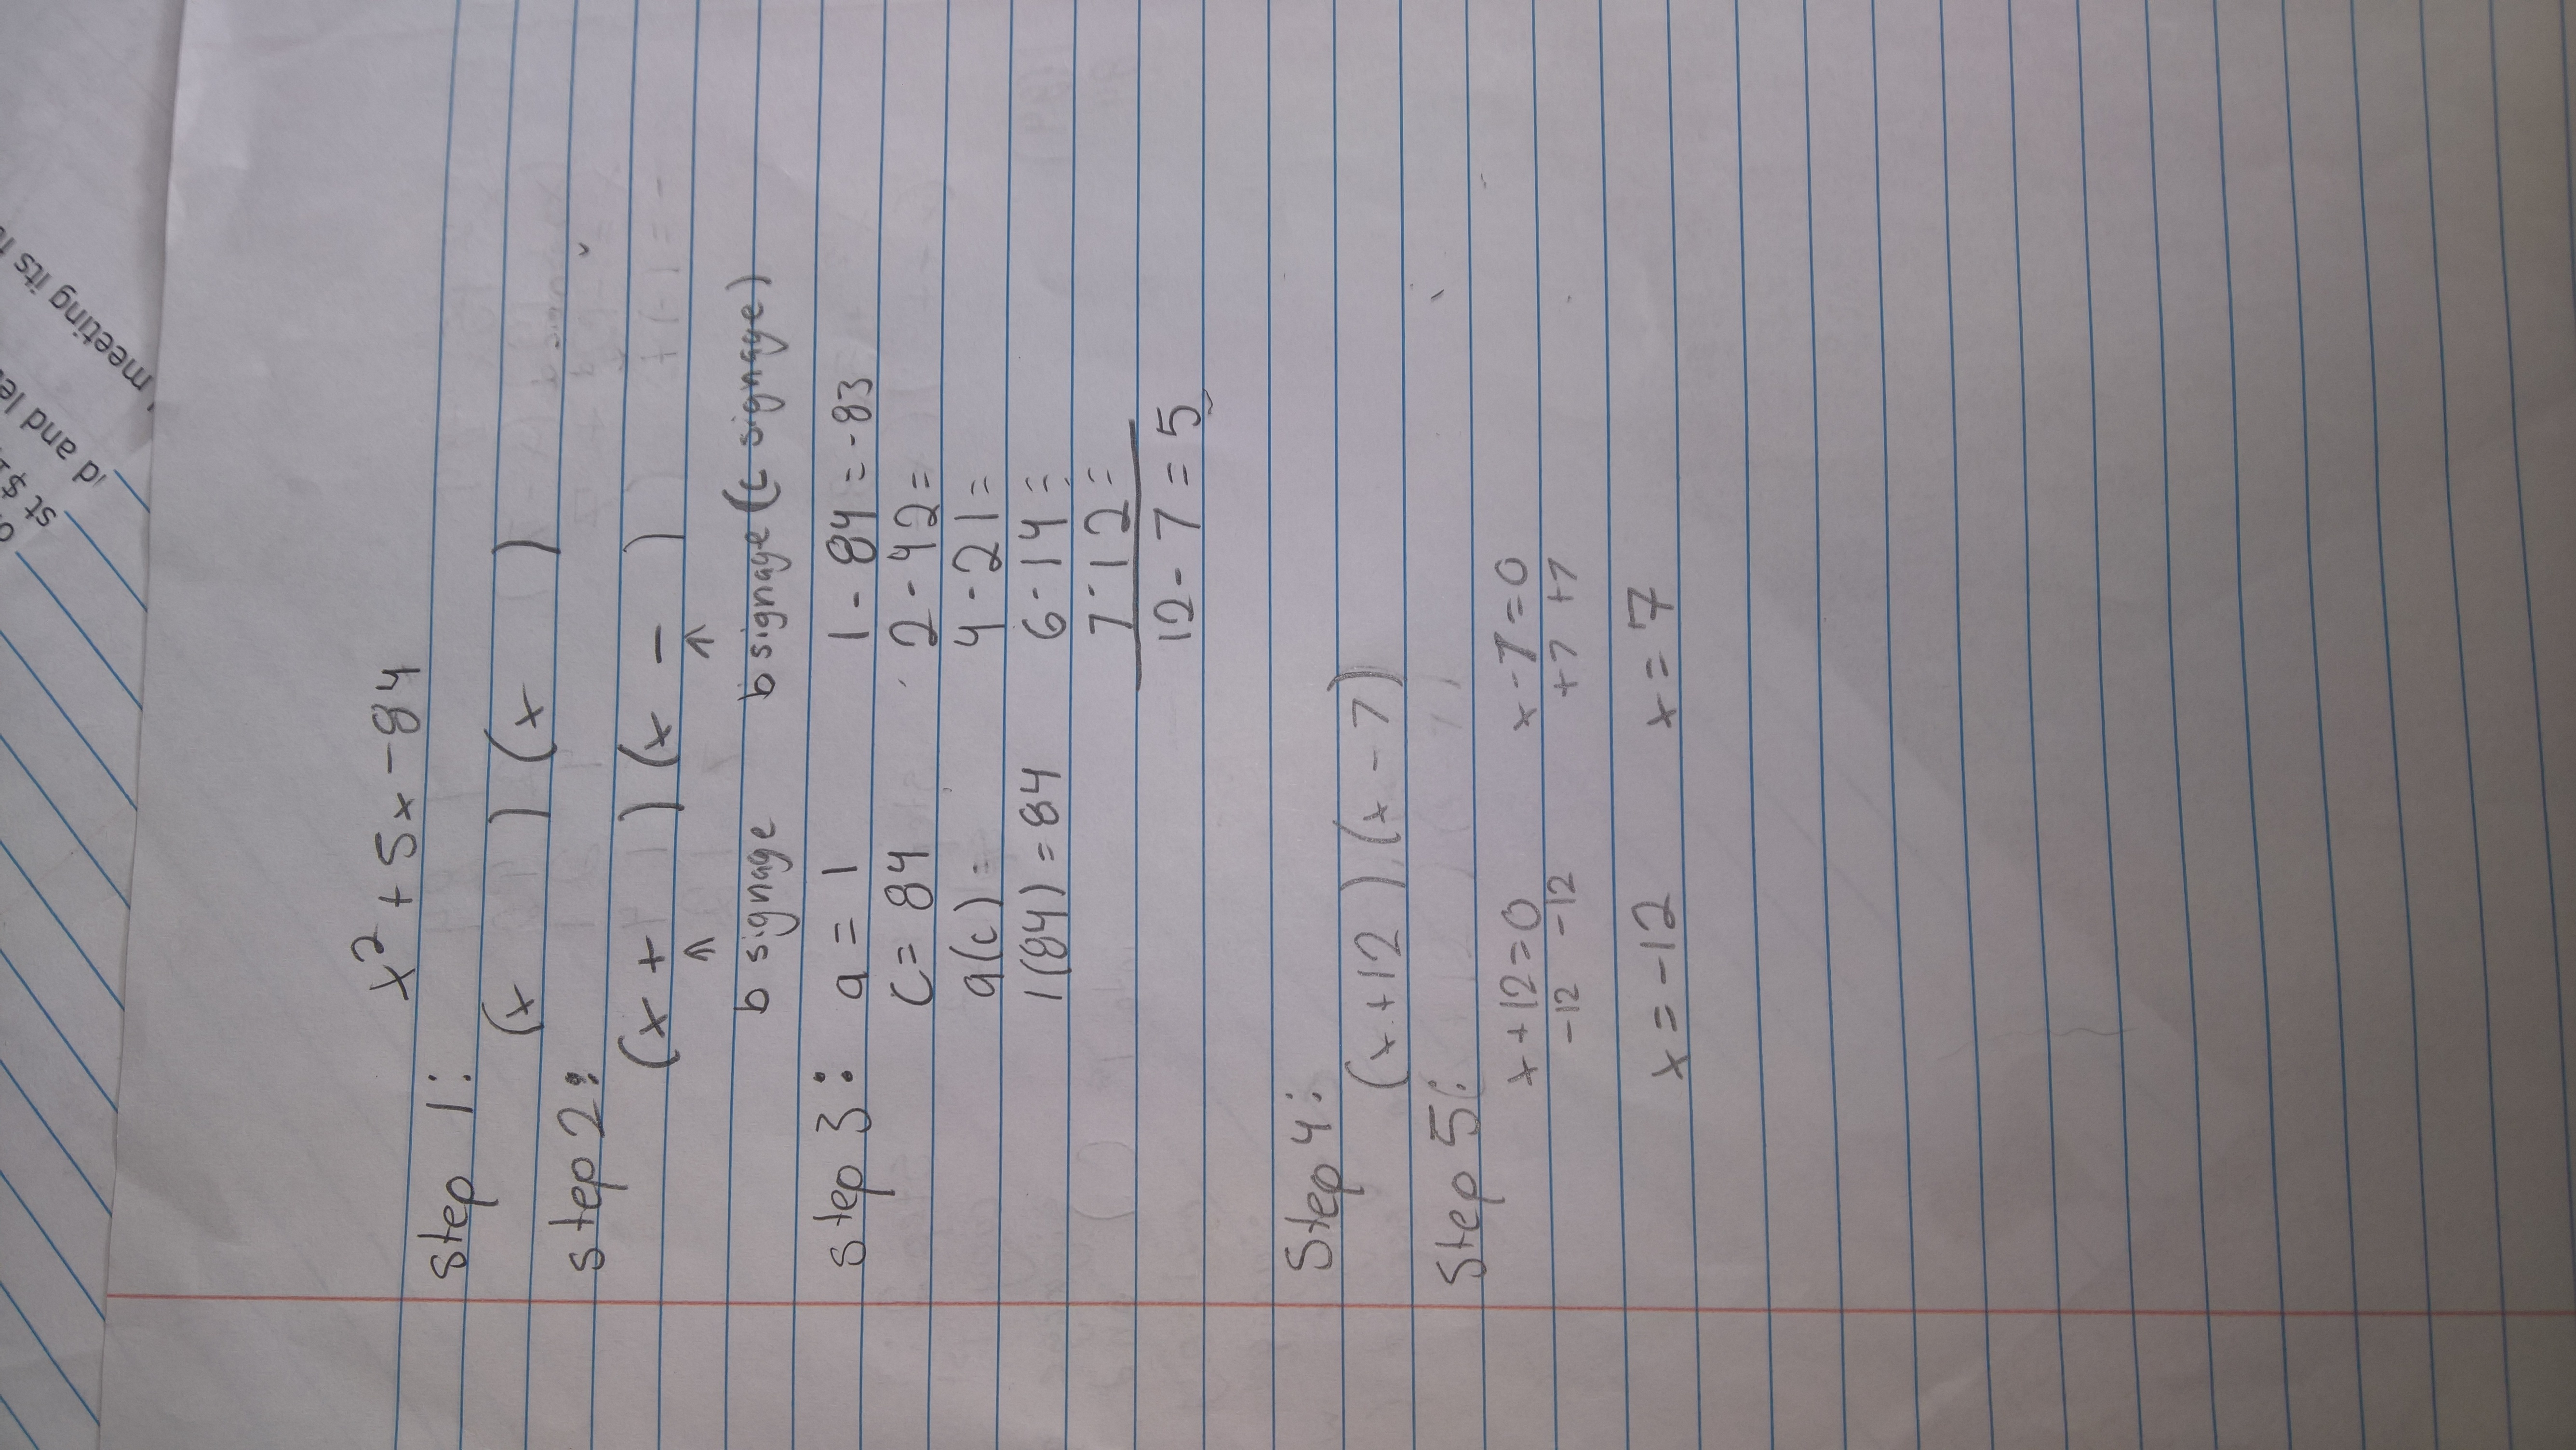 x² + 5x - 84
step 1:
(x ) (x )
step 2:
(x + ) (x - )
^ ^
b signage b signage (c signage)
step 3: a = 1 1 - 84 = -83
c = 84 2 - 42 =
a(c) = 4 - 21 =
1(84) = 84 6 - 14 =
7 - 12 =
12 - 7 = 5
Step 4:
(x + 12 ) (x - 7)
Step 5:
x + 12 = 0 x - 7 = 0
-12 -12 +7 +7
x = -12 x = 7
meeting its
d and le
st $